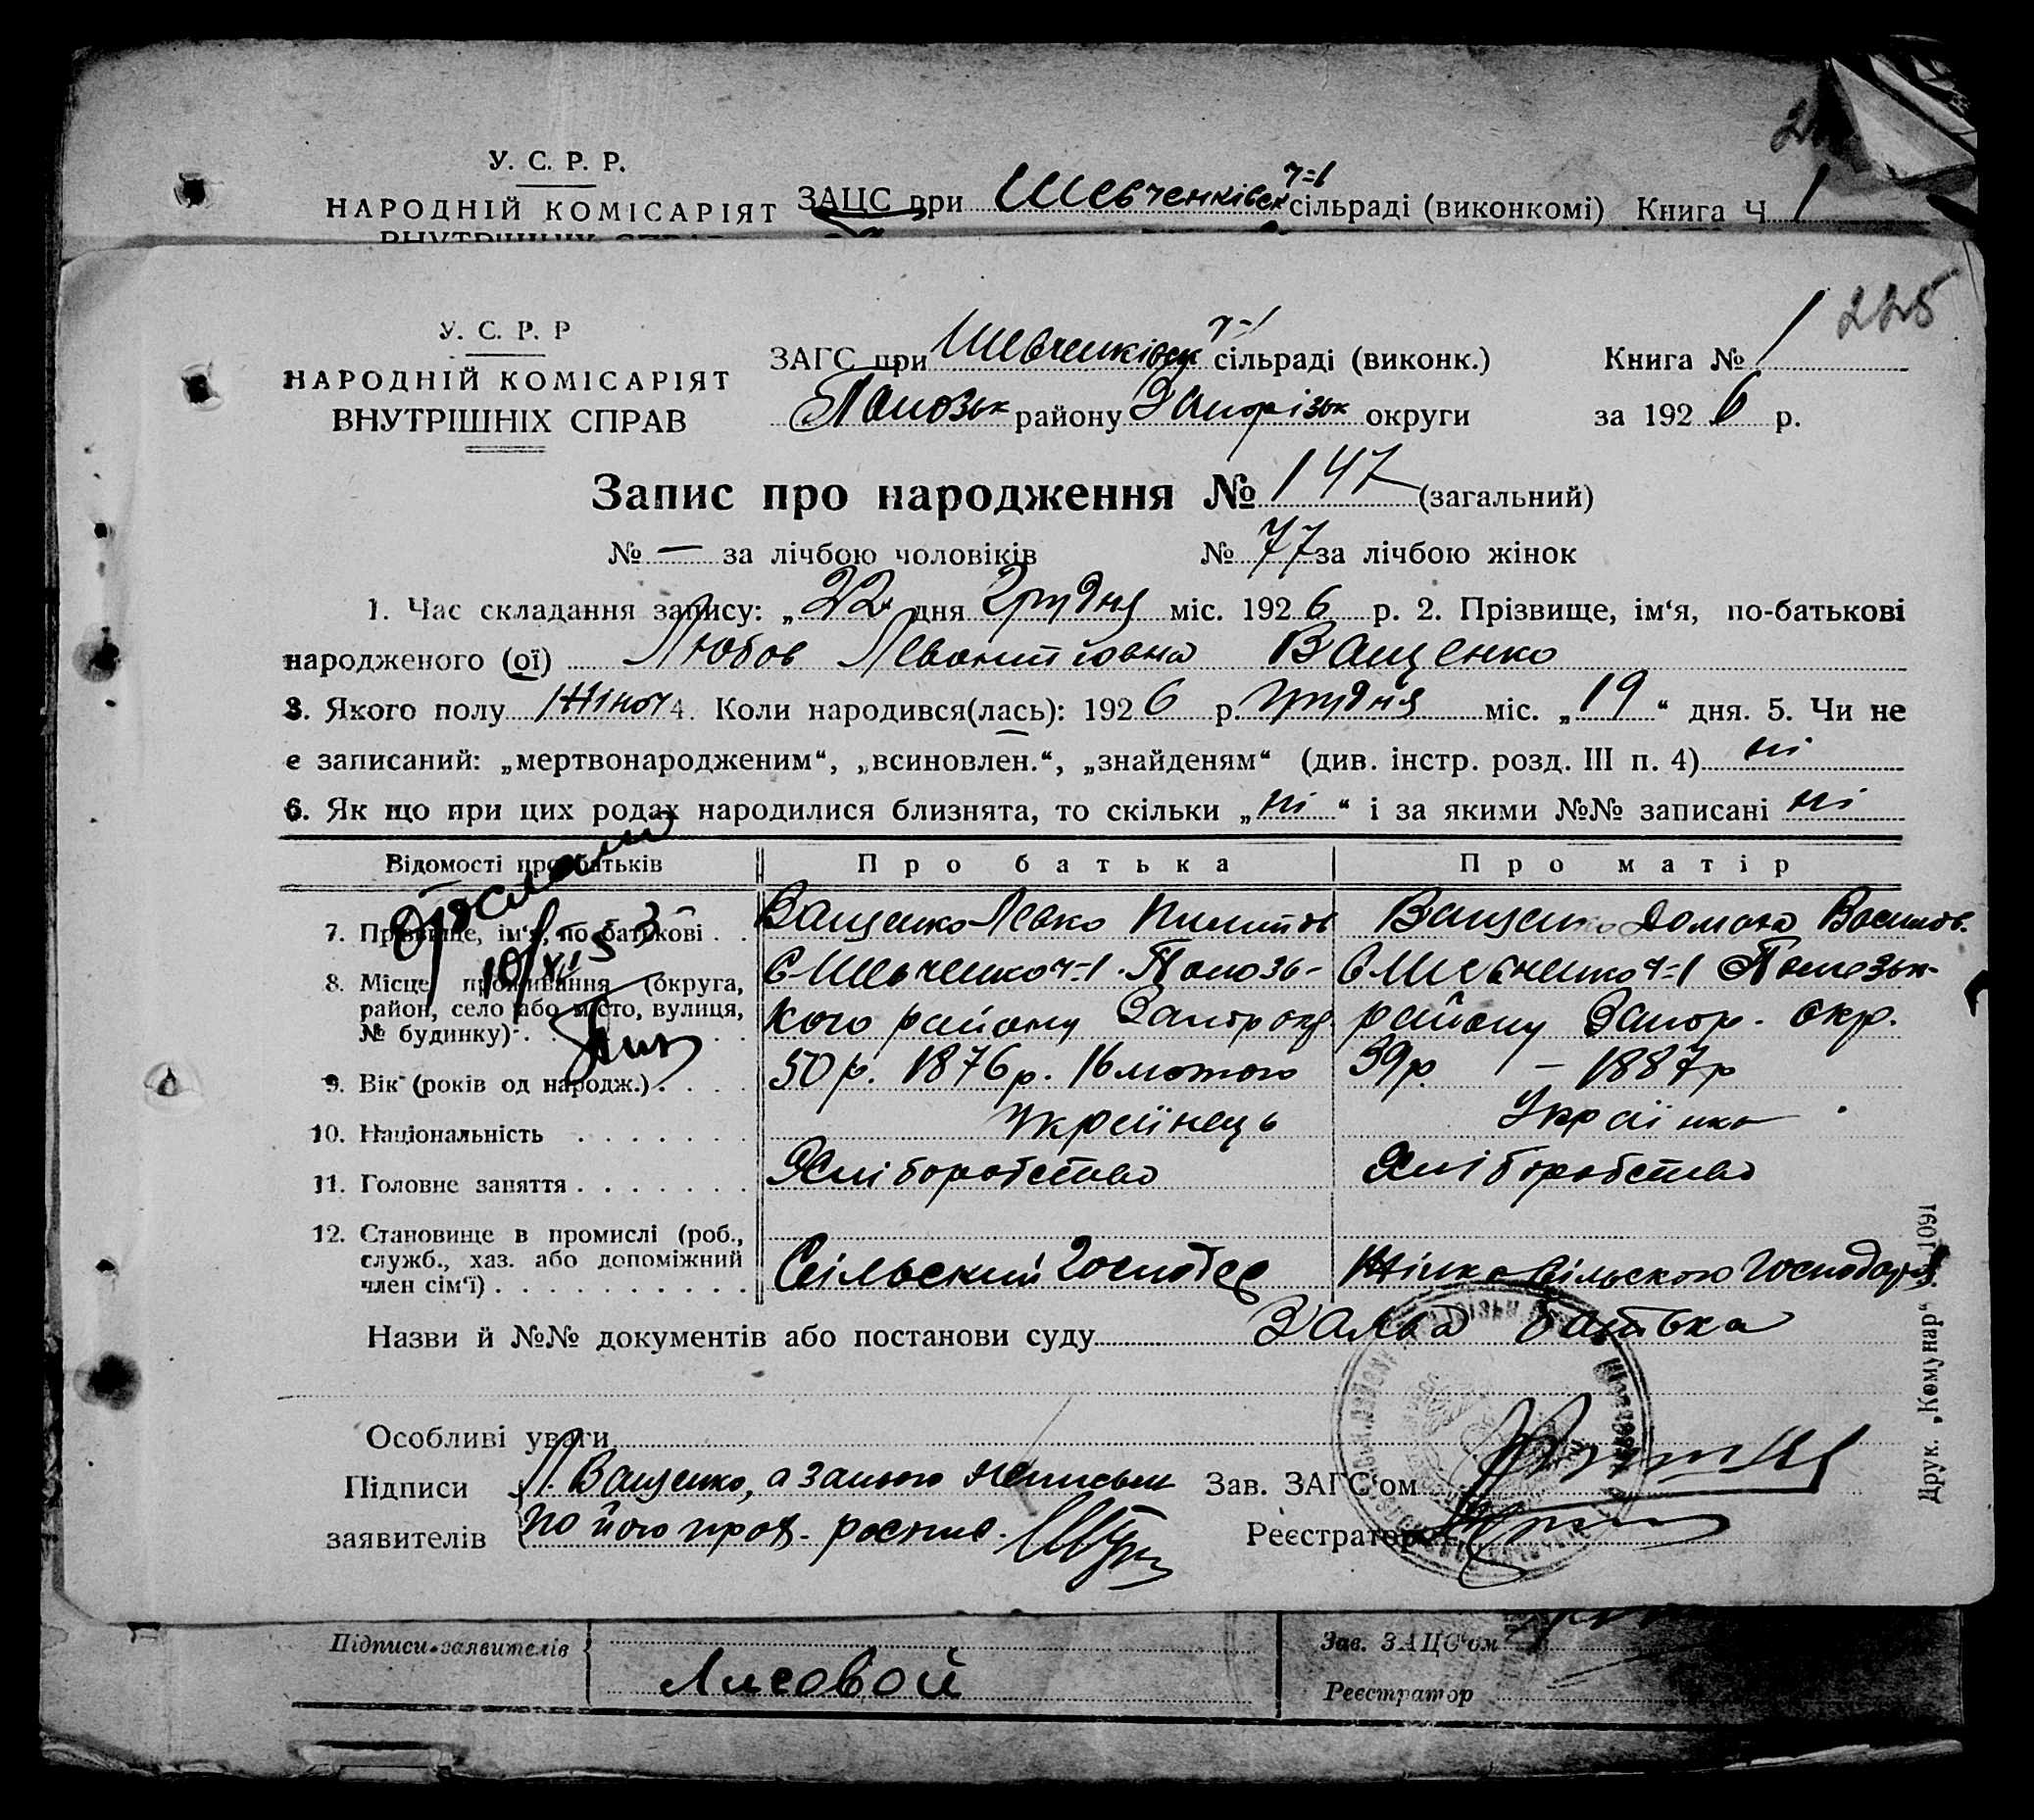 У. С. Р. Р.
НАРОДНІЙ КОМІСАРІЯТ ЗАЦС при Шевченківськ ч=1 сільраді (виконкомі) Книга Ч 1
ВНУТРІШНІХ СПРАВ
225
У. С. Р. Р
НАРОДНІЙ КОМІСАРІЯТ
ВНУТРІШНІХ СПРАВ
ЗАГС при Шевченківськ ч=1 сільраді (виконк.) Книга № 1
Пологзьк району Запорізьк округи за 192 6 р.
Запис про народження № 147 (загальний)
№ — за лічбою чоловіків № 77 за лічбою жінок
1. Час складання запису: „22“ дня Грудня міс. 192 6 р. 2. Прізвище, ім‘я, по-батькові
народженого (ої) Любов Левонтіовна Ващенко
3. Якого полу Жіноч 4. Коли народився(лась): 192 6 р. грудня міс. „19“ дня. 5. Чи не
є записаний: „мертвонародженим“, „всиновлен.“, „знайденям“ (див. інстр. розд. III п. 4) ні
6. Як що при цих родах народилися близнята, то скільки „ні“ і за якими №№ записані ні
Відомості про батьків Про батька Про матір
7. Прізвище, ім‘я, по-батькові Ващенко Левко Ващенко Домаха Василів.
8. Місце проживання (округа, район, село або місто, вулиця, № будинку) С Шевченко ч=1 Полозь- С Шевченко ч=1 Полозьк-
кого району Запор окр. району Запор. окр.
9. Вік (років од народж.) 50 р. 1876 р. 16 лютого 39 р. – 1887 р
10. Національність Українець Українка
11. Головне заняття Хліборобство Хліборобство
12. Становище в промислі (роб., служб., хаз. або допоміжний член сім‘ї) Сільський Господар Жінка Сільского Господаря
Назви й №№ документів або постанови суду Заява батька
Особливі уваги
Підписи Л. Ващенко, а за нього неписьм Зав. ЗАГС‘ом
заявителів по його прох. роспис. Реєстратор
Друк. „Комунар“ 1091
Підписи заявителів Лисовой Зав. ЗАЦС‘ом
Реєстратор